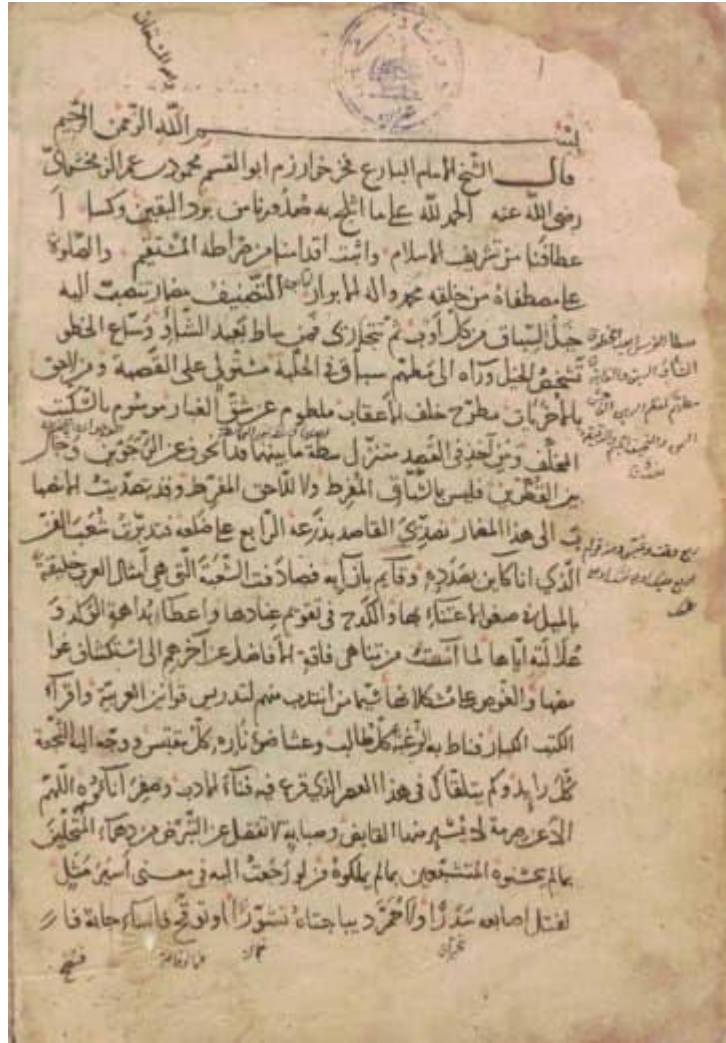 بسم الله الرحمن الرحيم
قال الشيخ الامام البارع فخر خوارزم ابو القسم محمود بن عمر الزمخشري
رضي الله عنه الحمد لله على ما اثلج به صدورنا من برد اليقين وكسا
عطافنا من تشريف الاسلام واثبت اقدامنا من صراطه المستقيم والصلوة
على مصطفاه من خلقه محمد واله الابرار التصنيف مضمار تنصب اليه
خيل السباق من كل اوب ثم تتجارى فمن ساط بعيد الشأو وساع الخطو
تشخص الخيل وراه الى مطهم سباق في الحلبة مستولي على القصبة ومن لاحق
بالاخريات مطرح خلف الاعقاب ملطوم عن شق الغبار موسوم بالسكيت
المخلف ومن آخذ في القصد متنزل سطة ما بينهما قد انحرف عن الرجوين وجال
بين القطرين فليس بالسباق المفرط ولا اللاحق المفرط وقد تصديت لانصبا
ب الى هذا المضمار تصدي القاصد بذرعه الرابع على ضلعه فتدبرت
الذي انا كاين بصدده وقايم بازايه فصادفت الشعبة التي هي امثال العرب خليقة
بالميل في صغو الاعتناء بها والكدح في تقويم عنادها واعطاء بداهة الوكد و
علالته اياها لما
مضها والغوص على مشكلاتها من انتدب منهم لتدريس قوانين العربية واقراء
الكتب الكبار فناط به الرغبة كل طالب وعشا ضوء ناره كل مقتبس ووجه اليه النجعة
كل رايد وكم يتلقاك في هذا العصر الذي قرع فيه فناء الادب وصفر اناؤه اللهم
الا عن صرمة لا يسئر منها القابض وصبابة لا تفضل عن التبرض من دهماء المتحلين
بما لم يحسنوه المتشبعين بما لم يملكوه من لو رجعت اليه في معنى اسير مثل
لفتل اصابعه شذرا ولاحمرت ديباجتاه تشورا او توقح فاساء جابة فا